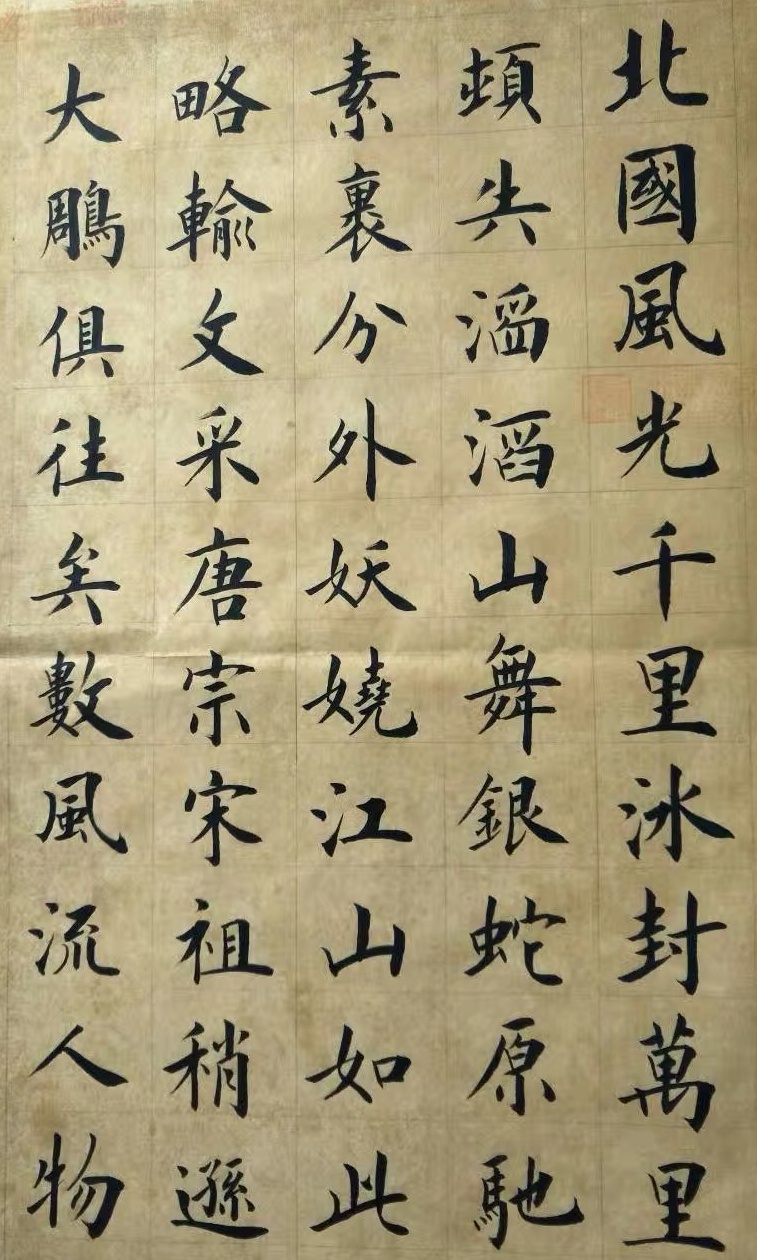 北國風光千里冰封萬里
頓失滔滔山舞銀蛇原馳
素裹分外妖嬈江山如此
略輸文采唐宗宋祖稍遜
大鵰俱往矣數風流人物